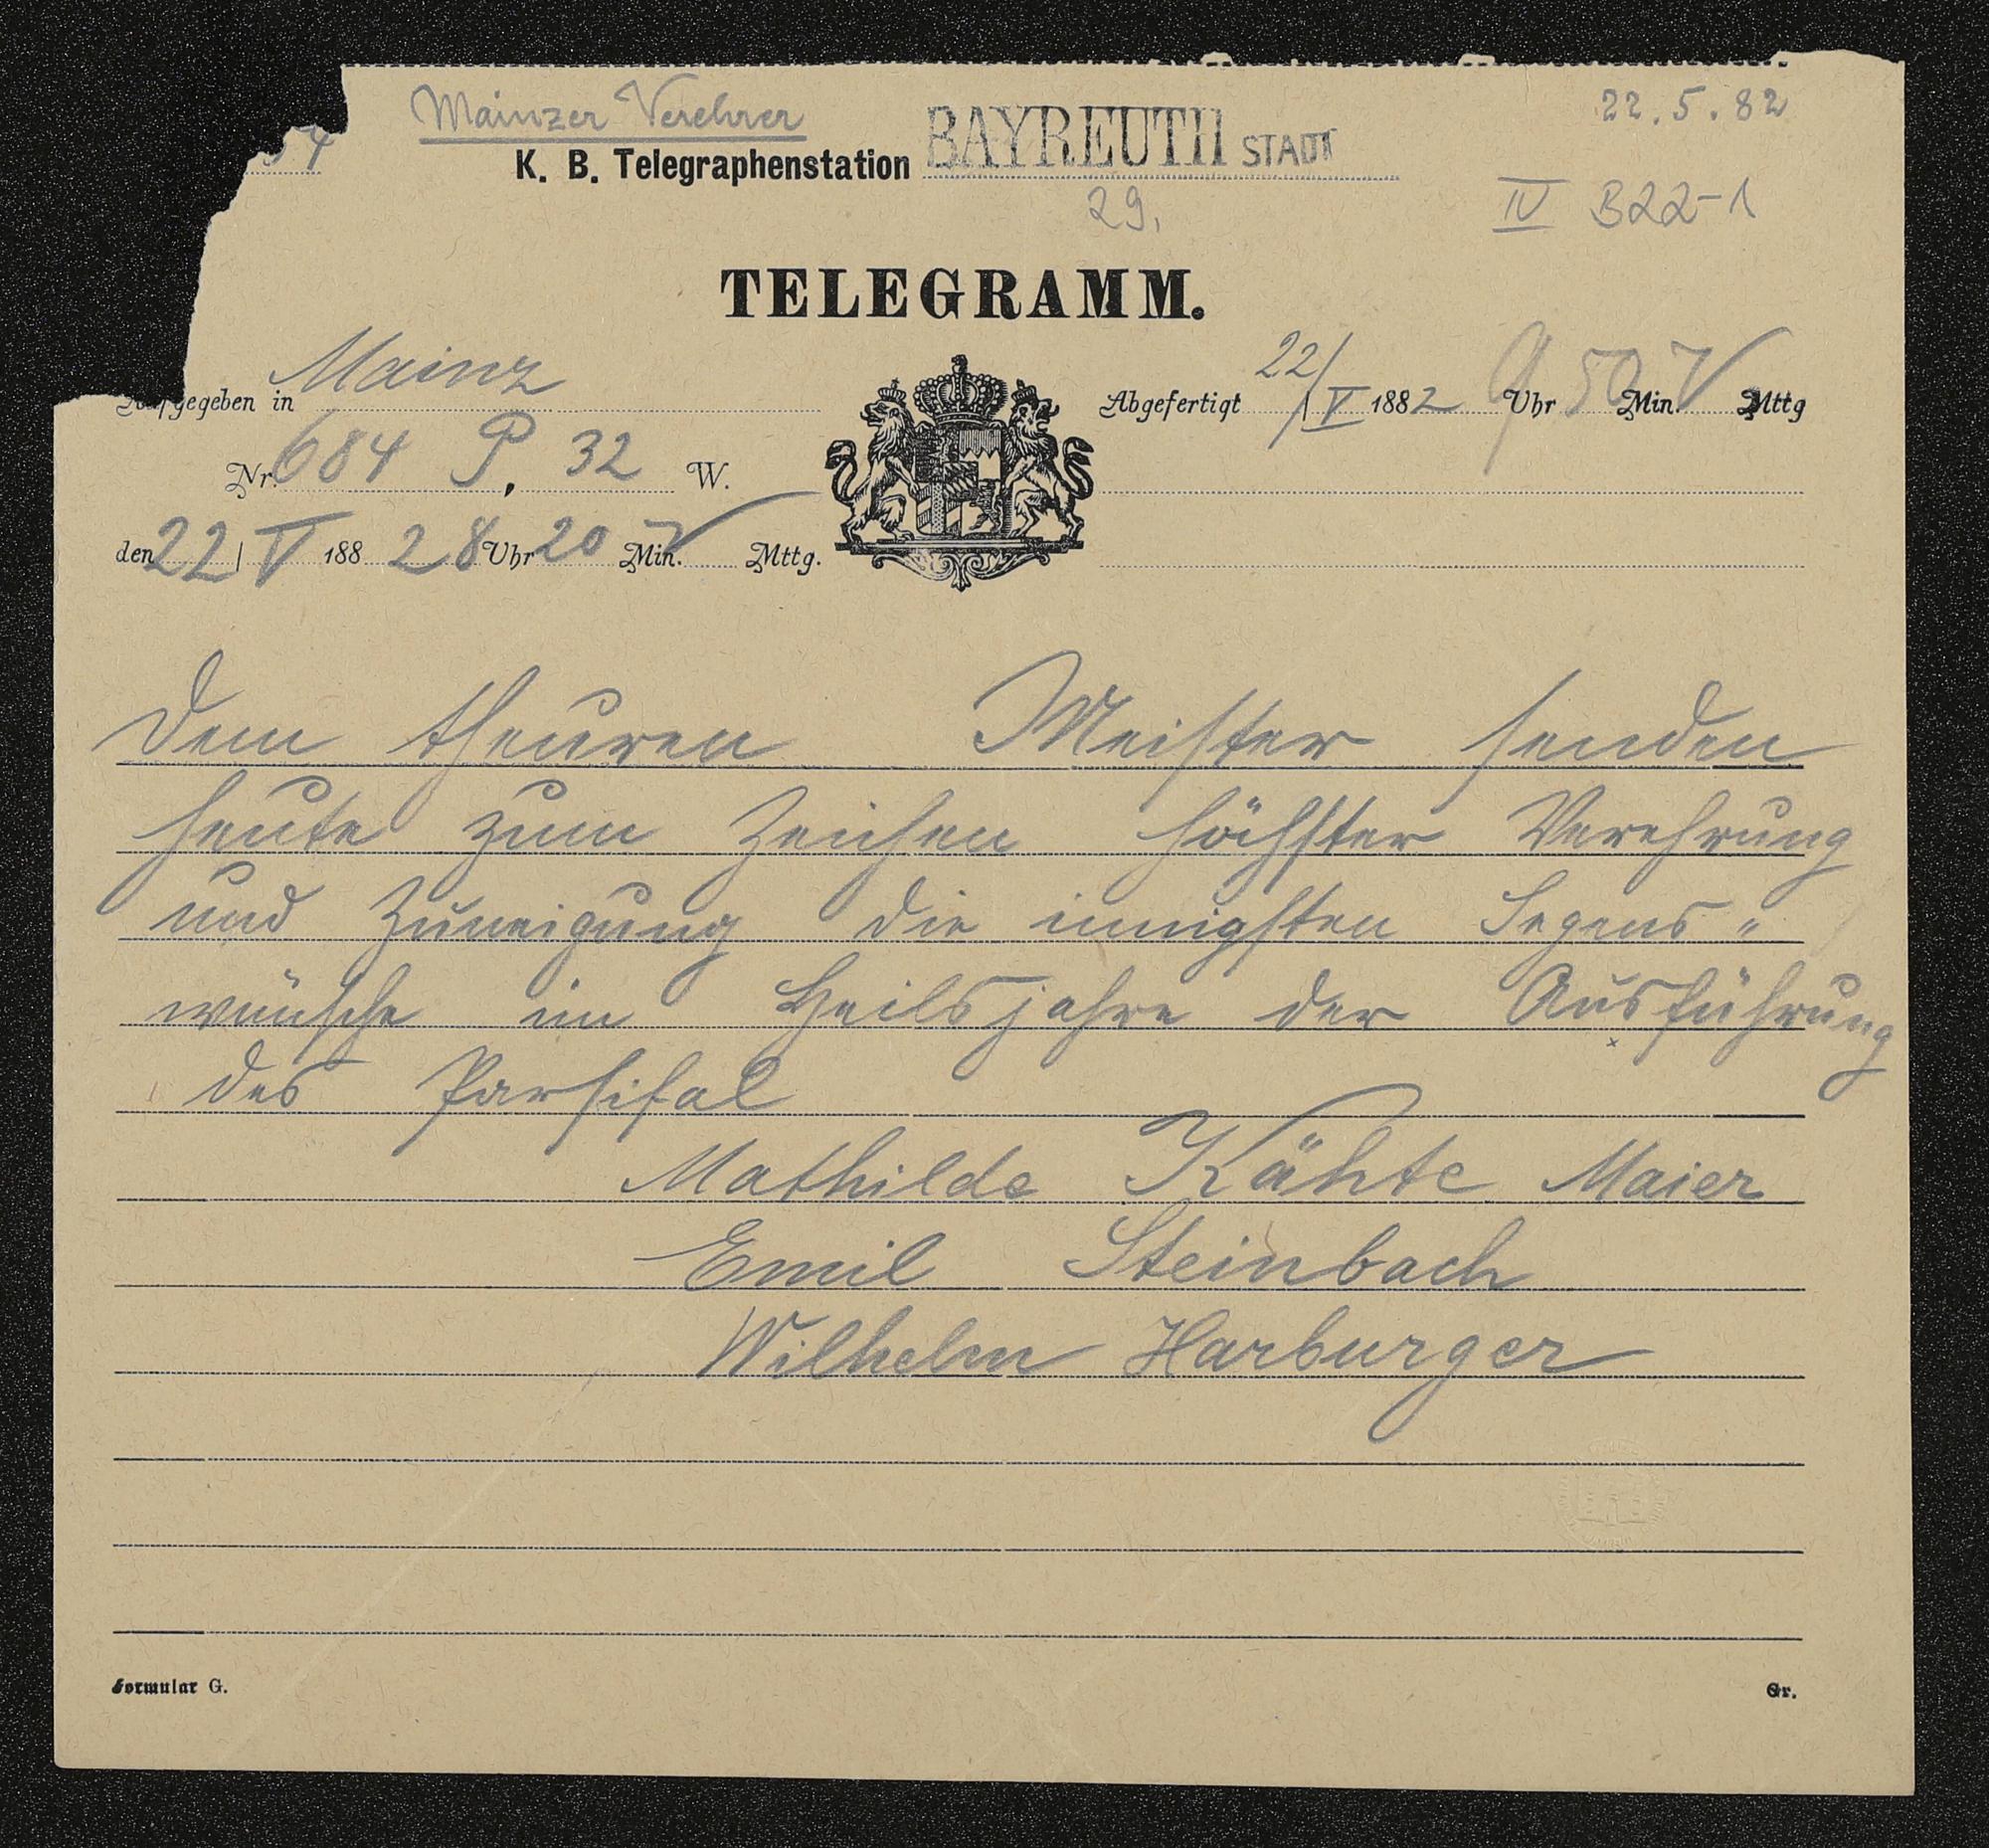 Mainzer Verehrer
22.5.82
K. B. Telegraphenstation BAYREUTH STADT
29.
IV B22-1
TELEGRAMM.
Aufgegeben in Mainz
Abgefertigt 22/V 1882 9 Uhr 50 Min. V Mttg
Nr. 684 P. 32 W.
den 22/V 1882 8 Uhr 20 Min. V Mttg.
Dem theuren Meister senden
heute zum Zeichen höchster Verehrung
und Zuneigung die innigsten Segens"
wünsche im Heilsjahre der Ausführung
des Parsifal
Mathilde Kähte Maier
Emil Steinbach
Wilhelm Harburger
Formular G.
Gr.